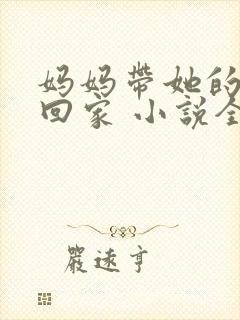 妈妈带她的
回家 小说全
严速亨